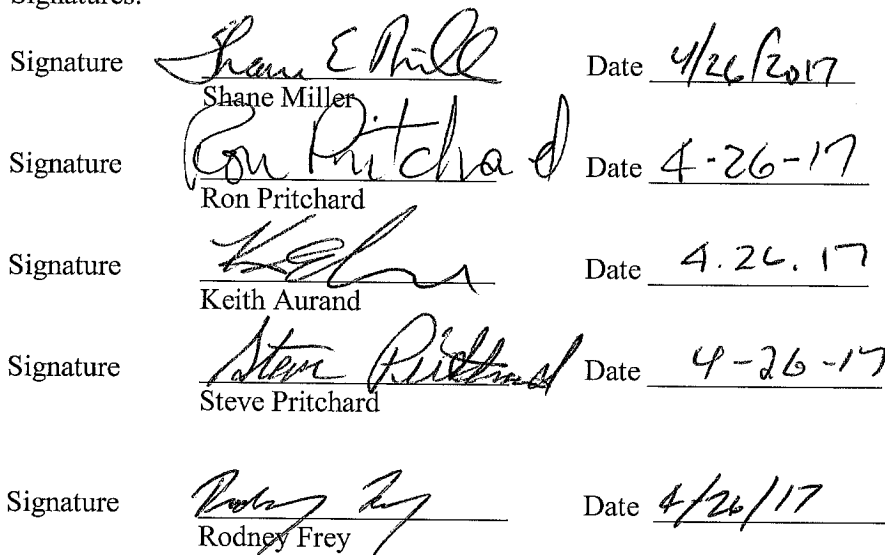 Signatures:
Signature Shane E Mill Date 4/26/2017
Shane Miller
Signature Ron Pritchard Date 4-26-17
Ron Pritchard
Signature Date 4.26.17
Keith Aurand
Signature Steve Pritchard Date 4-26-17
Steve Pritchard
Signature Rodney Frey Date 4/26/17
Rodney Frey